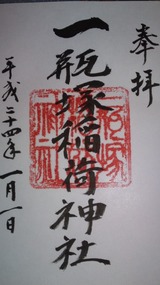 奉拝
一瓶塚稲荷神社
平成二十四年一月一日